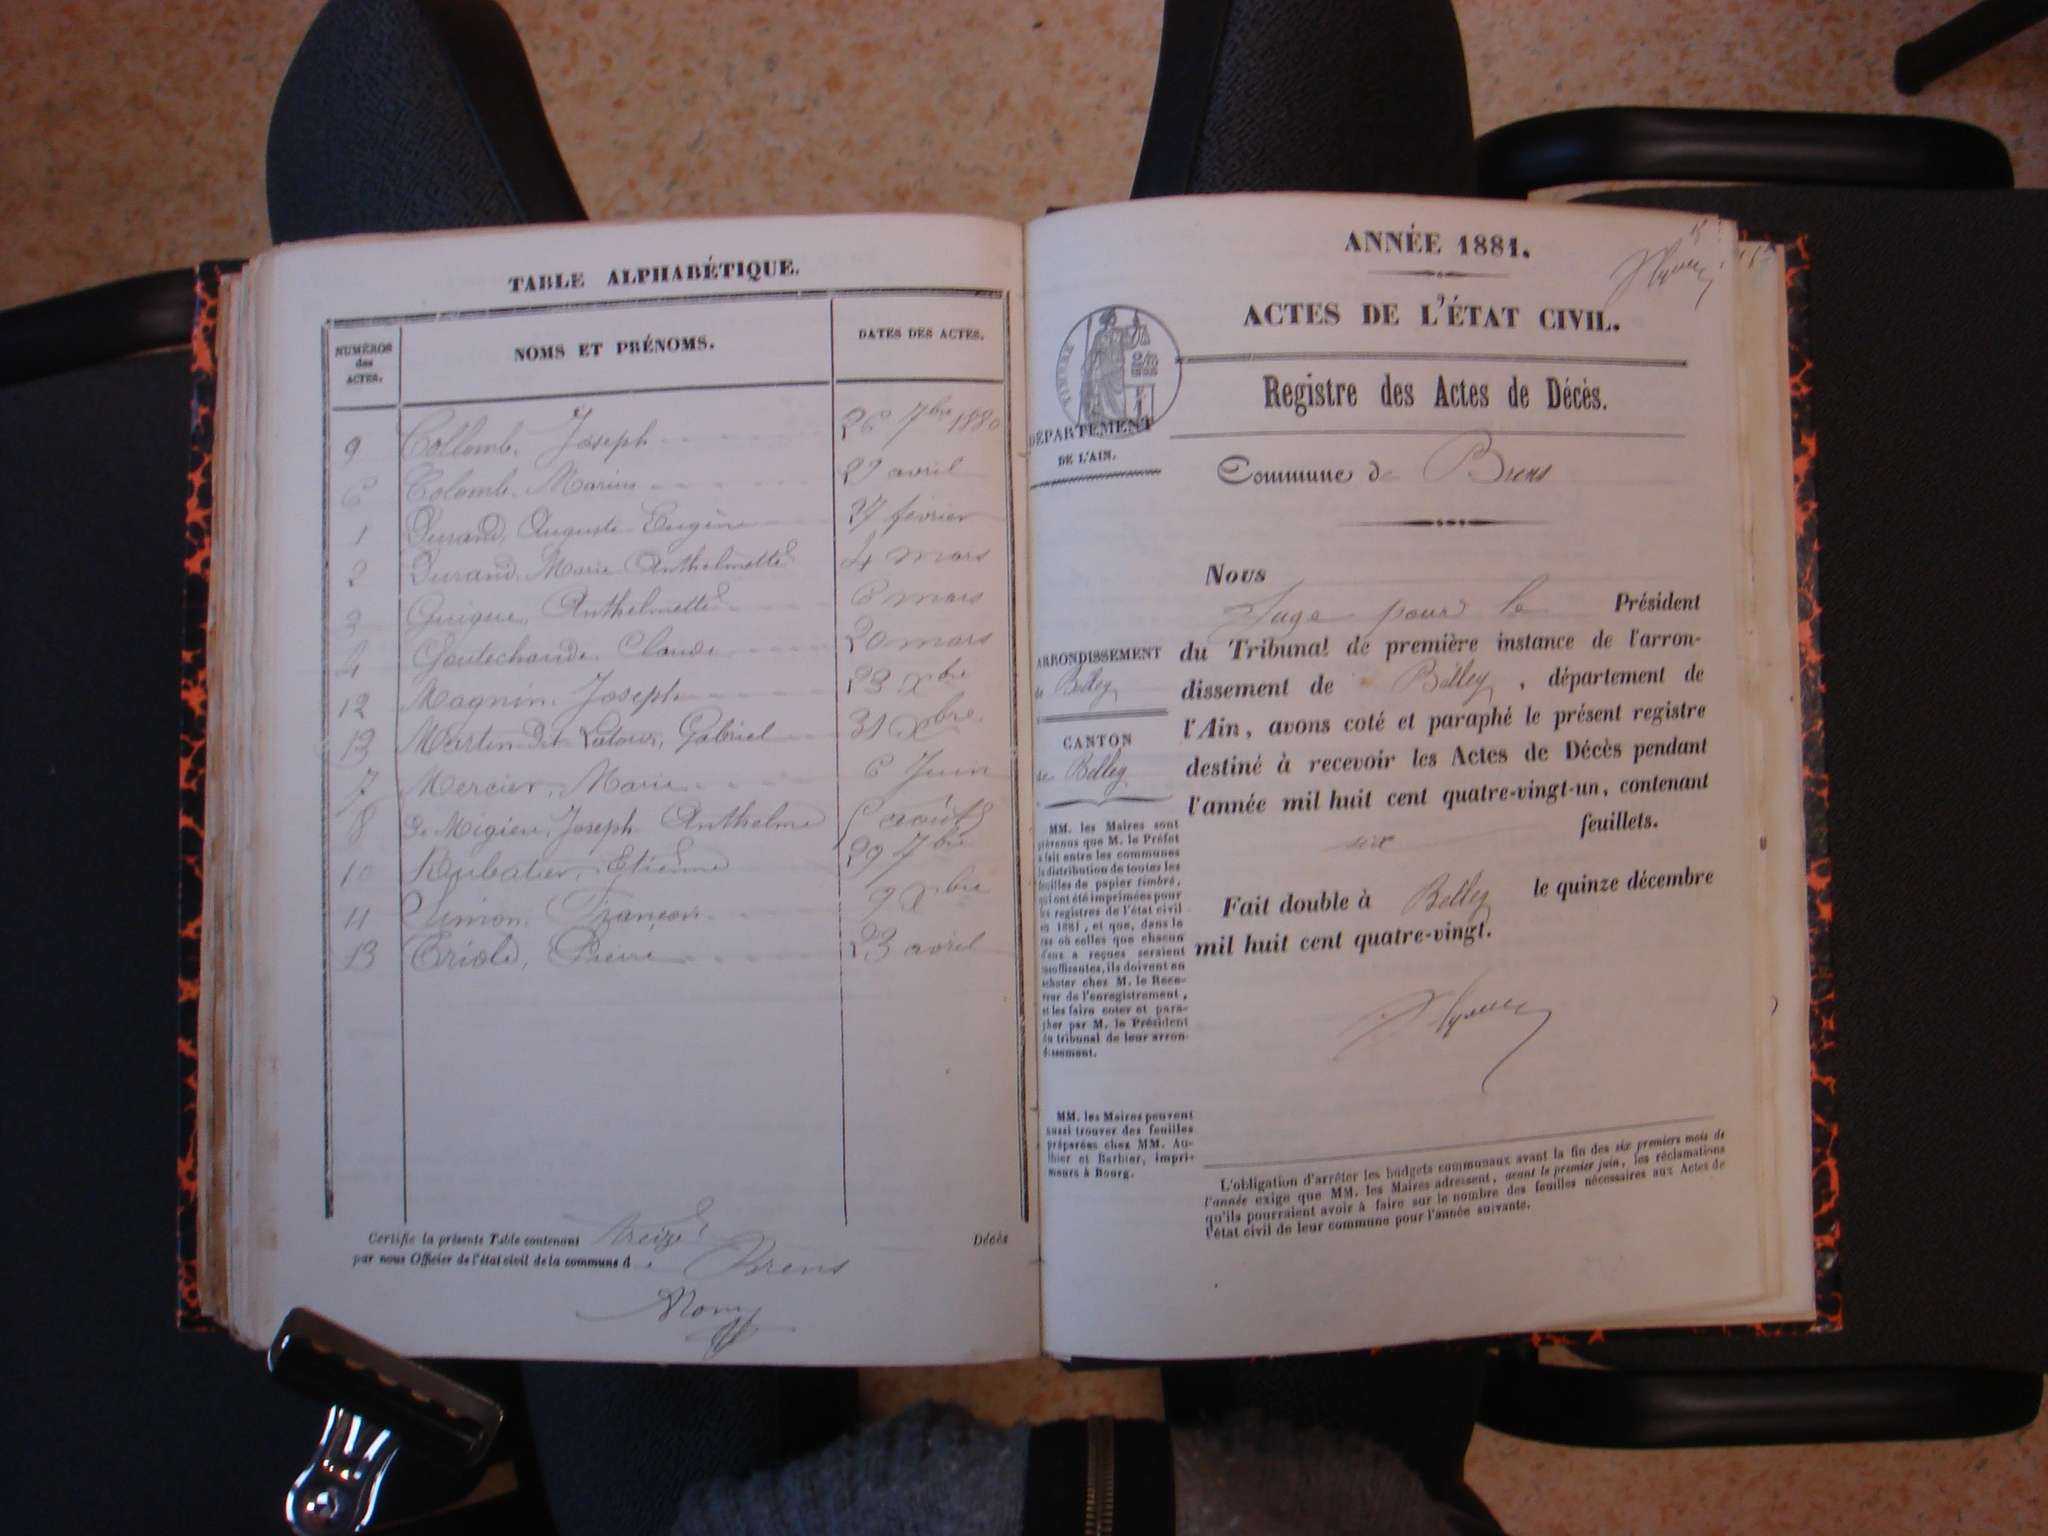 TABLE ALPHABÉTIQUE.
NUMÉROS des ACTES.
NOMS ET PRÉNOMS.
DATES DES ACTES.
9 Collomb, Joseph 26 7bre 1880
6 Colomb, Marius 29 avril
1 Durand, Auguste Eugène 27 février
2 Durand, Marie Anthelmette 4 mars
3 Guigue, Anthelmette 6 mars
4 Claude 20 mars
12 Magnin, Joseph 23 Xbre
13 Martin dit Latour, Gabriel 31 Xbre
7 Mercier, Marie 6 Juin
8 de Migieu, Joseph Anthelme août
10 Rubatier, Etienne 29 7bre
11 Simon, François 9 Xbre
13 Pierre 23 avril
Certifie la présente Table contenant treize Décès
par nous Officier de l'état civil de la commune de Brens
ANNÉE 1881.
ACTES DE L'ÉTAT CIVIL.
Registre des Actes de Décès.
DÉPARTEMENT
DE L'AIN.
Commune de Brens
ARRONDISSEMENT
de Belley
CANTON
de Belley
MM. les Maires sont
prévenus que M. le Préfet
a fait entre les communes
la distribution de toutes les
feuilles de papier timbré,
qui ont été imprimées pour
les registres de l'état civil
en 1881, et que, dans le
cas où celles que chacun
d'eux a reçues seraient
insuffisantes, ils doivent en
acheter chez M. le Rece-
veur de l'enregistrement,
et les faire coter et para-
pher par M. le Président
du tribunal de leur arron-
dissement.
MM. les Maires peuvent
aussi trouver des feuilles
préparées chez MM. Au-
thier et Barbier, impri-
meurs à Bourg.
Nous
Juge pour le Président
du Tribunal de première instance de l'arron-
dissement de Belley, département de
l'Ain, avons coté et paraphé le présent registre
destiné à recevoir les Actes de Décès pendant
l'année mil huit cent quatre-vingt-un, contenant
six feuillets.
Fait double à Belley le quinze décembre
mil huit cent quatre-vingt.
L'obligation d'arrêter les budgets communaux avant la fin des six premiers mois de
l'année exige que MM. les Maires adressent, avant le premier juin, les réclamations
qu'ils pourraient avoir à faire sur le nombre des feuilles nécessaires aux Actes de
l'état civil de leur commune pour l'année suivante.